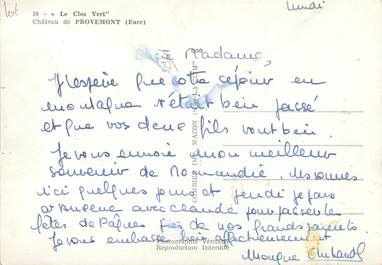 lundi
10 - « Le Clos Vert"
Château de PROVEMONT (Eure)
Chère Madame,
J'espère que votre séjour en
montagne s'était bien passé
et que vos deux fils vont bien.
Je vous envoie mon meilleur
souvenir de Normandie. Nous sommes
ici quelques jours et jeudi je pars
avec Claude pour passer les
fêtes de Pâques près de nos grands parents.
Je vous embrasse bien affectueusement
Photographie Véritable
Reproduction Interdite
Monique